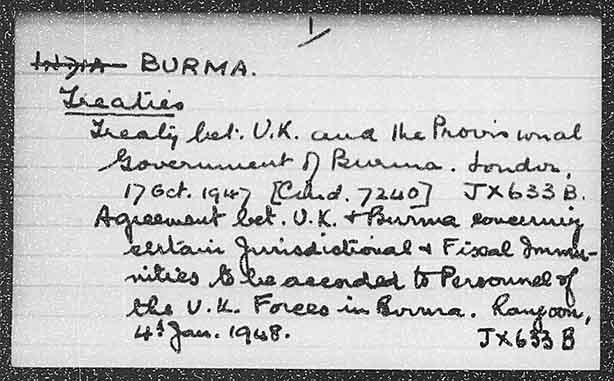 1/
INDIA BURMA.
Treaties
Treaty bet. U.K. and the Provisional
Government of Burma. London,
17 Oct. 1947 [Cmd. 7240] JX633B.
Agreement bet. U.K. & Burma concerning
certain Jurisdictional & Fiscal Immu-
nities to be accorded to Personnel of
the U.K. Forces in Burma. Rangoon,
4th Jan. 1948. JX633B